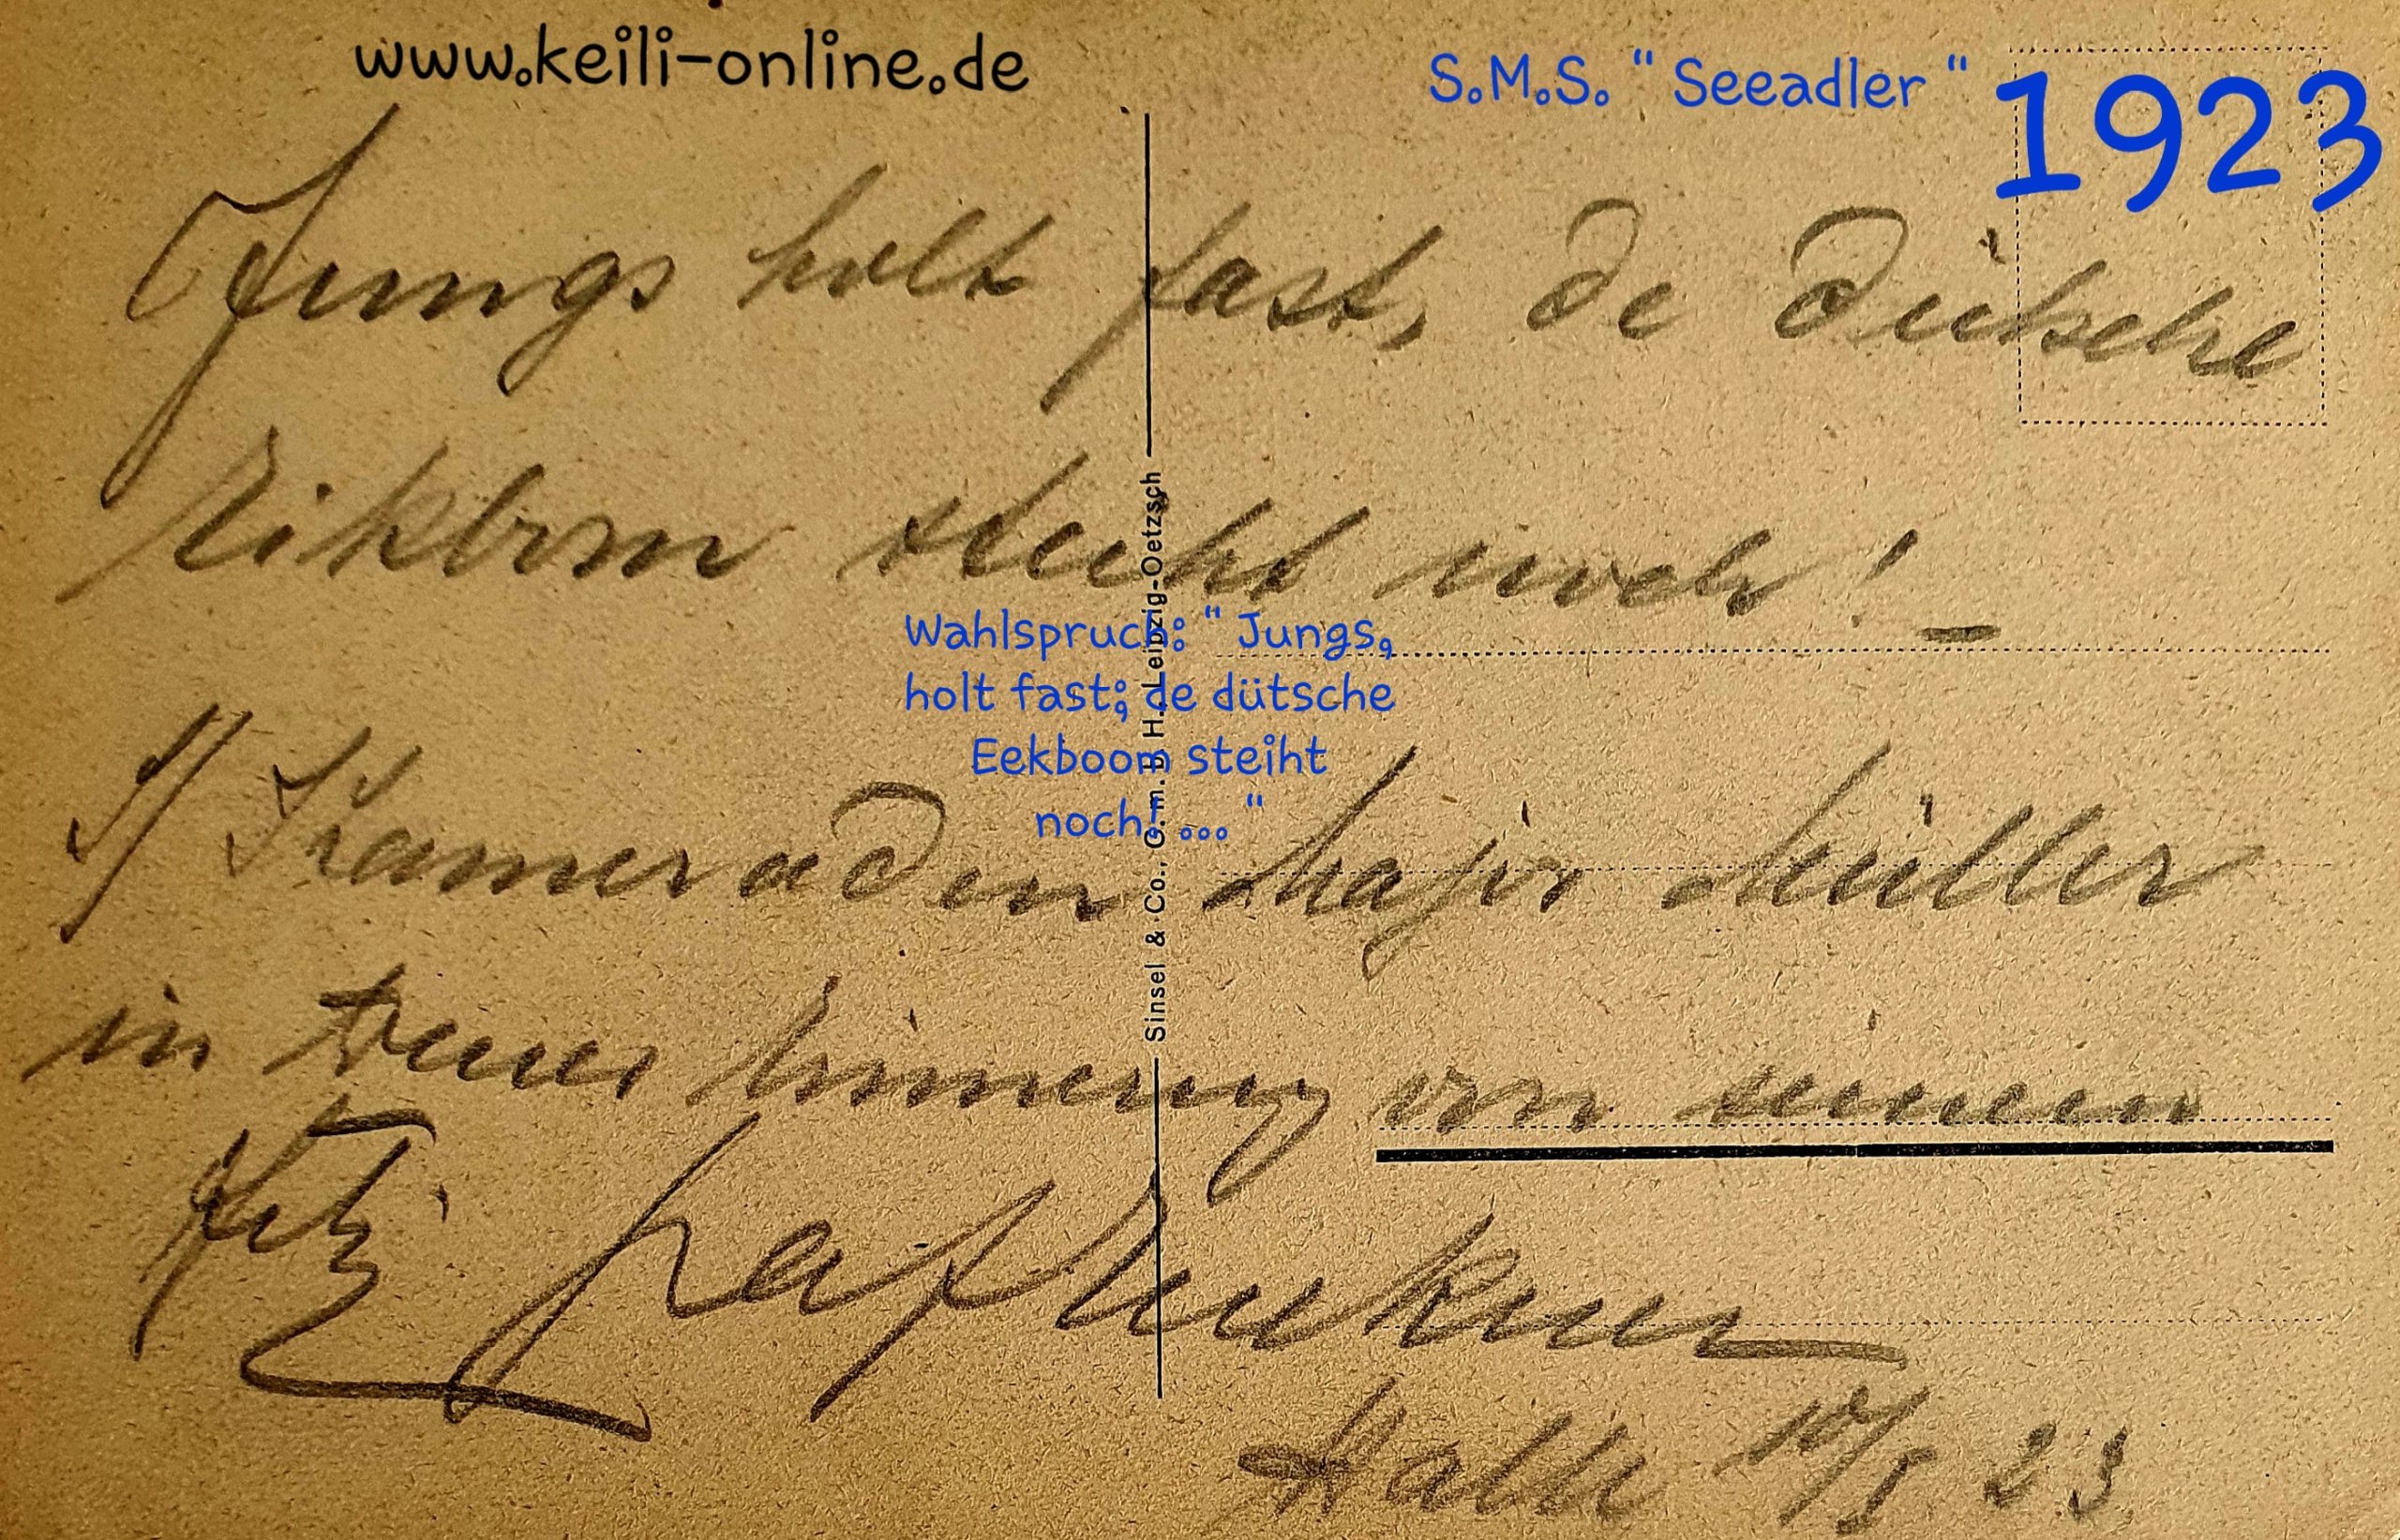 www.keili-online.de
S.M.S. " Seeadler "
1923
Jungs holt fast, de dütsche
Eikbom steiht noch! –
Wahlspruch: " Jungs,
holt fast; de dütsche
Eekboom steiht
noch! ... "
Kameraden Major Müller
in treuer Erinnerung von seinem
Felix Graf Luckner
Halle 10/5 23
Sinsel & Co., G. m. b. H. Leipzig-Oetzsch